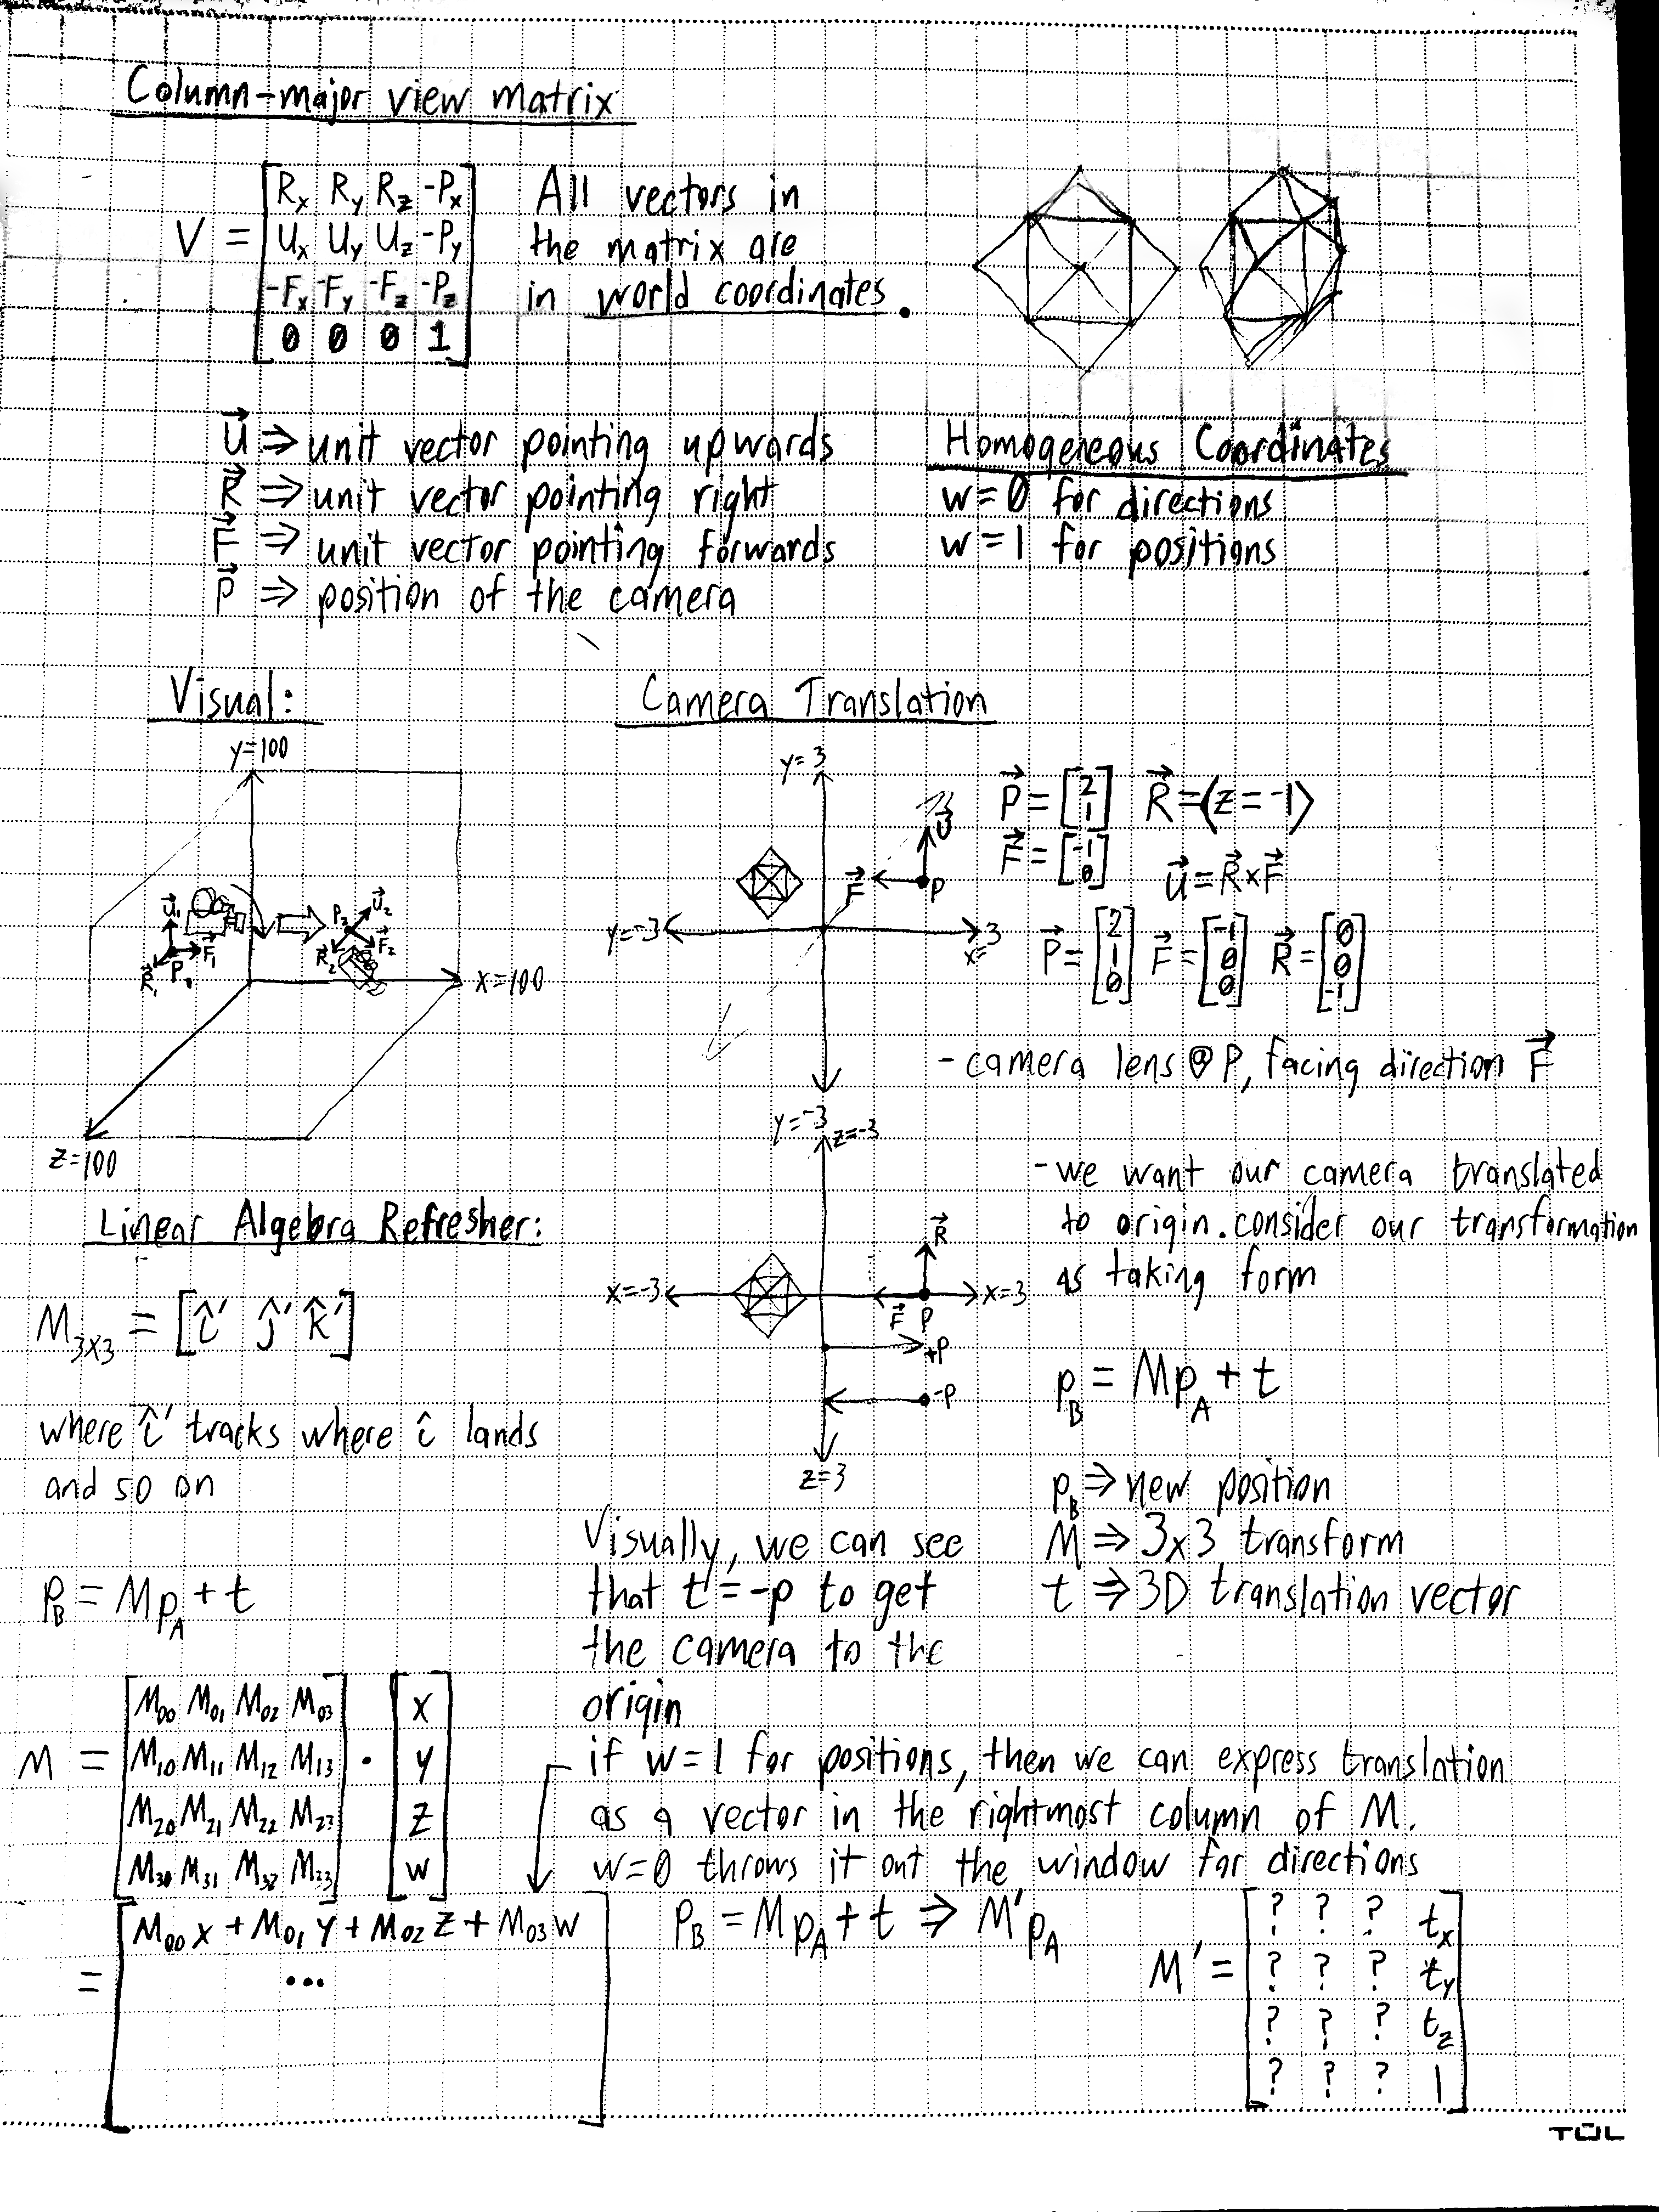 Column-major view matrix
V = [Rx Ry Rz -Px
Ux Uy Uz -Py
-Fx -Fy -Fz -Pz
0 0 0 1]
All vectors in
the matrix are
in world coordinates.
U⃗ ⇒ unit vector pointing upwards
R⃗ ⇒ unit vector pointing right
F⃗ ⇒ unit vector pointing forwards
P⃗ ⇒ position of the camera
Homogeneous Coordinates
w=0 for directions
w=1 for positions
Visual:
y=100
U⃗₁
F⃗₁
R⃗₁ P₁
P₂ U⃗₂
R⃗₂ F⃗₂
x=100
z=100
Camera Translation
y=3
U⃗
F⃗ P
y=-3
3
x=
y=-3
P⃗ = [2 1] R⃗ = (z=-1)
F⃗ = [-1 0]
U⃗ = R⃗ × F⃗
P⃗ = [2 1 0] F⃗ = [-1 0 0] R⃗ = [0 0 -1]
- camera lens @ P, facing direction F⃗
z=-3
R⃗
x=-3
x=3
F⃗ P
+P
-P
z=3
- we want our camera translated
to origin. consider our transformation
as taking form
p_B = Mp_A + t
p_B ⇒ new position
M ⇒ 3x3 transform
t ⇒ 3D translation vector
Linear Algebra Refresher:
M₃ₓ₃ = [î' ĵ' k̂']
where î' tracks where î lands
and so on
p_B = Mp_A + t
Visually, we can see
that t = -p to get
the camera to the
origin
M = [M00 M01 M02 M03
M10 M11 M12 M13
M20 M21 M22 M23
M30 M31 M32 M33] · [x y z w]
= [M00 x + M01 y + M02 z + M03 w
...]
if w=1 for positions, then we can express translation
as a vector in the rightmost column of M.
w=0 throws it out the window for directions
p_B = Mp_A + t ⇒ M'p_A
M' = [? ? ? tx
? ? ? ty
? ? ? tz
? ? ? 1]
TUL